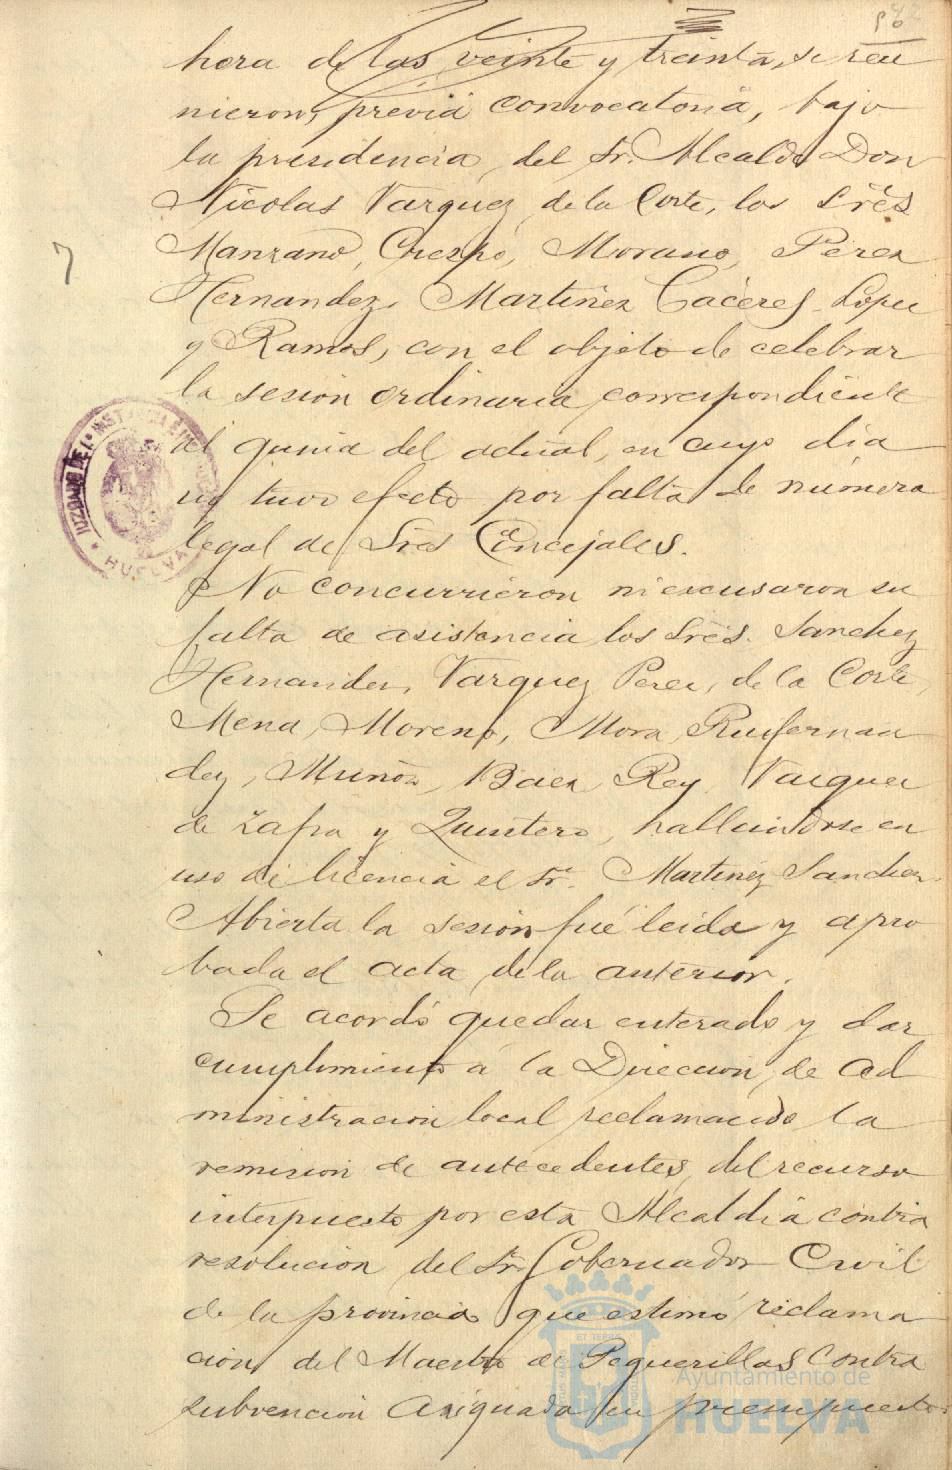 hora de las veinte y treinta, se reu
nieron, previa convocatoria, bajo
la presidencia del Sr. Alcalde Don
Nicolas Vazquez de la Corte, los Sres
Manzano, Crespo, Morano, Perez
Hernandez, Martinez Caceres, Lopez
y Ramos, con el objeto de celebrar
la sesion ordinaria correspondiente
al del actual, en cuyo dia
no tuvo efecto por falta de número
legal de Sres Concejales.
No concurrieron ni escusaron su
falta de asistencia los Sres. Sanchez
Hernandez, Vazquez Perez, de la Corte,
Mena, Moreno, Mora, Ruifernan
dez, Muñoz, Baez, Rey, Vazquez
de Zafra y Quintero, hallandose en
uso de licencia el Sr. Martinez Sanchez.
Abierta la sesion fué leida y apro
bada el acta de la anterior.
Se acordó quedar enterado y dar
cumplimiento á la Dirección de Ad
ministracion local reclamando la
remision de antecedentes del recurso
interpuesto por esta Alcaldia contra
resolucion del Sr. Gobernador Civil
de la provincia que estimó reclama
cion del Maestro de Peguerillas contra
subvencion asignada en presupuesto
7
JUZGADO DE 1ª INSTANCIA E
HUELVA
Ayuntamiento de
HUELVA